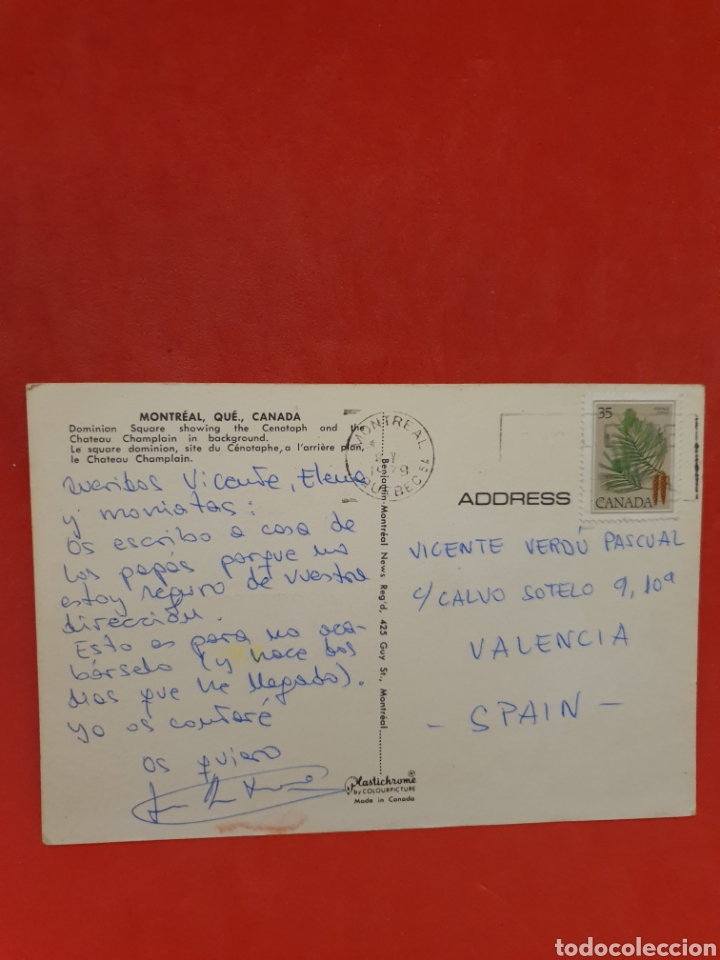 MONTRÉAL, QUÉ., CANADA
Dominion Square showing the Cenotaph and the
Chateau Champlain in background.
Le square dominion, site du Cénotaphe, a l'arrière plan,
le Chateau Champlain.
Queridos Vicente, Elena
y moniatas:
os escribo a casa de
los papás porque no
estoy seguro de vuestra
dirección.
Esto es para no aca-
bárselo (y hace dos
días que he llegado).
ya os contaré
os quiero
Benjamin-Montréal News Reg'd, 425 Guy St., Montréal
Plastichrome®
by COLOURPICTURE
Made in Canada
MONTREAL
1979
QUEBEC
35
CANADA
ADDRESS
VICENTE VERDÚ PASCUAL
C/ CALVO SOTELO 9, 10ª
VALENCIA
- SPAIN -
todocoleccion